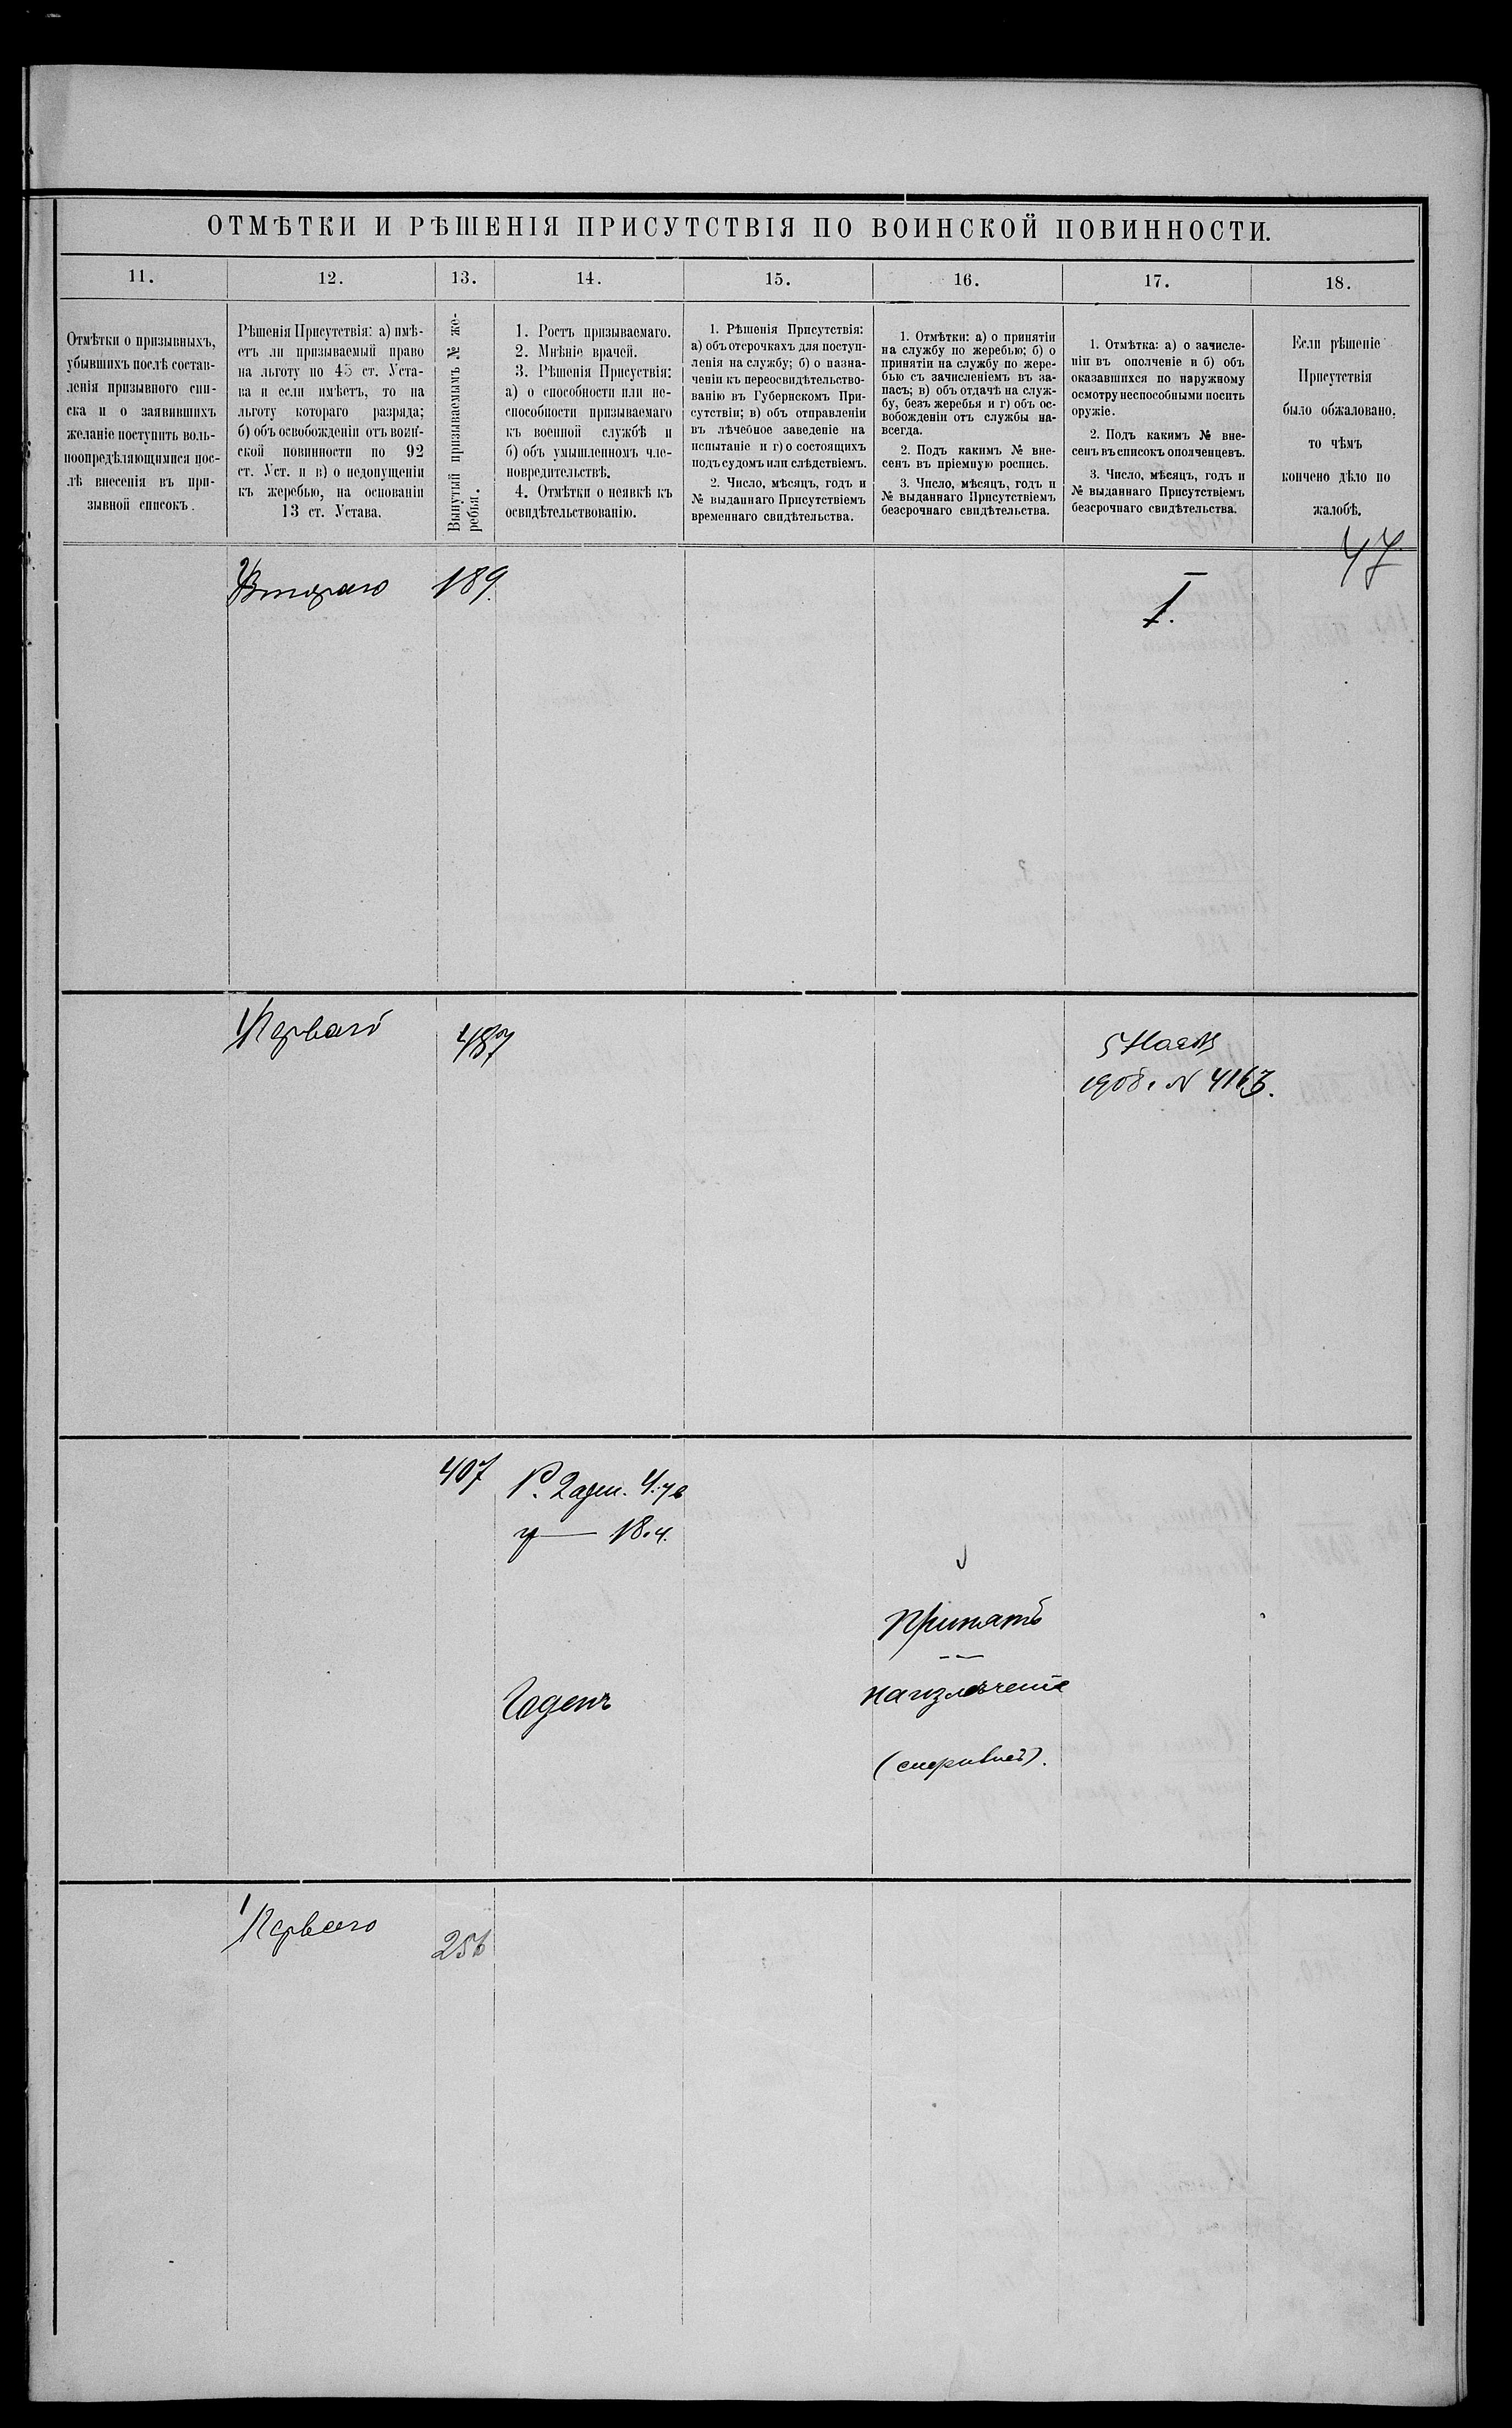 ОТМѢТКИ И РѢШЕНІЯ ПРИСУТСТВІЯ ПО ВОИНСКОЙ ПОВИННОСТИ.
11.
12.
13.
14.
15.
16.
17.
18.
Отмѣтки о призывныхъ,
убывшихъ послѣ состав-
ленія призывного спи-
ска и о заявившихъ
желаніе поступить воль-
ноопредѣляющимися пос-
лѣ внесенія въ при-
зывной списокъ.
Рѣшенія Присутствія: а) имѣ-
етъ ли призываемый право
на льготу по 45 ст. Уста-
ва и если имѣетъ, то на
льготу котораго разряда;
б) объ освобожденіи отъ воин-
ской повинности по 92
ст. Уст. и в) о недопущеніи
къ жеребью, на основаніи
13 ст. Устава.
Вынутый призываемымъ № же-
ребья.
1. Ростъ призываемаго.
2. Мнѣніе врачей.
3. Рѣшенія Присуствія:
а) о способности или не-
способности призываемаго
къ военной службѣ и
б) объ умышленномъ чле-
новредительствѣ.
4. Отмѣтки о неявкѣ къ
освидѣтельствованію.
1. Рѣшенія Присутствія:
а) объ отсрочкахъ для поступ-
ленія на службу; б) о назна-
ченіи къ переосвидѣтельство-
ванію въ Губернскомъ При-
сутствіи; в) объ отправленіи
въ лѣчебное заведеніе на
испытаніе и г) о состоящихъ
подъ судомъ или слѣдствіемъ.
2. Число, мѣсяцъ, годъ и
№ выданнаго Присутствіемъ
временнаго свидѣтельства.
1. Отмѣтки: а) о принятіи
на службу по жеребью; б) о
принятіи на службу по жере-
бью съ зачисленіемъ въ за-
пасъ; в) объ отдачѣ на служ-
бу, безъ жеребья и г) объ ос-
вобожденіи отъ службы на-
всегда.
2. Подъ какимъ № вне-
сенъ въ пріемную роспись.
3. Число, мѣсяцъ, годъ и
№ выданнаго Присутствіемъ
безсрочнаго свидѣтельства.
1. Отмѣтка: а) о зачисле-
ніи въ ополченіе и б) объ
оказавшихся по наружному
осмотру неспособными носить
оружіе.
2. Подъ какимъ № вне-
сенъ въ списокъ ополченцевъ.
3. Число, мѣсяцъ, годъ и
№ выданнаго Присутствіемъ
безсрочнаго свидѣтельства.
Если рѣшеніе
Присутствія
было обжаловано,
то чѣмъ
кончено дѣло по
жалобѣ.
47
2 Втораго 189. I.
1 Перваго 487
1908. N 4163.
407
Р. 2 арш. 4.
18.
Годенъ
Принятъ
1 Перваго 256